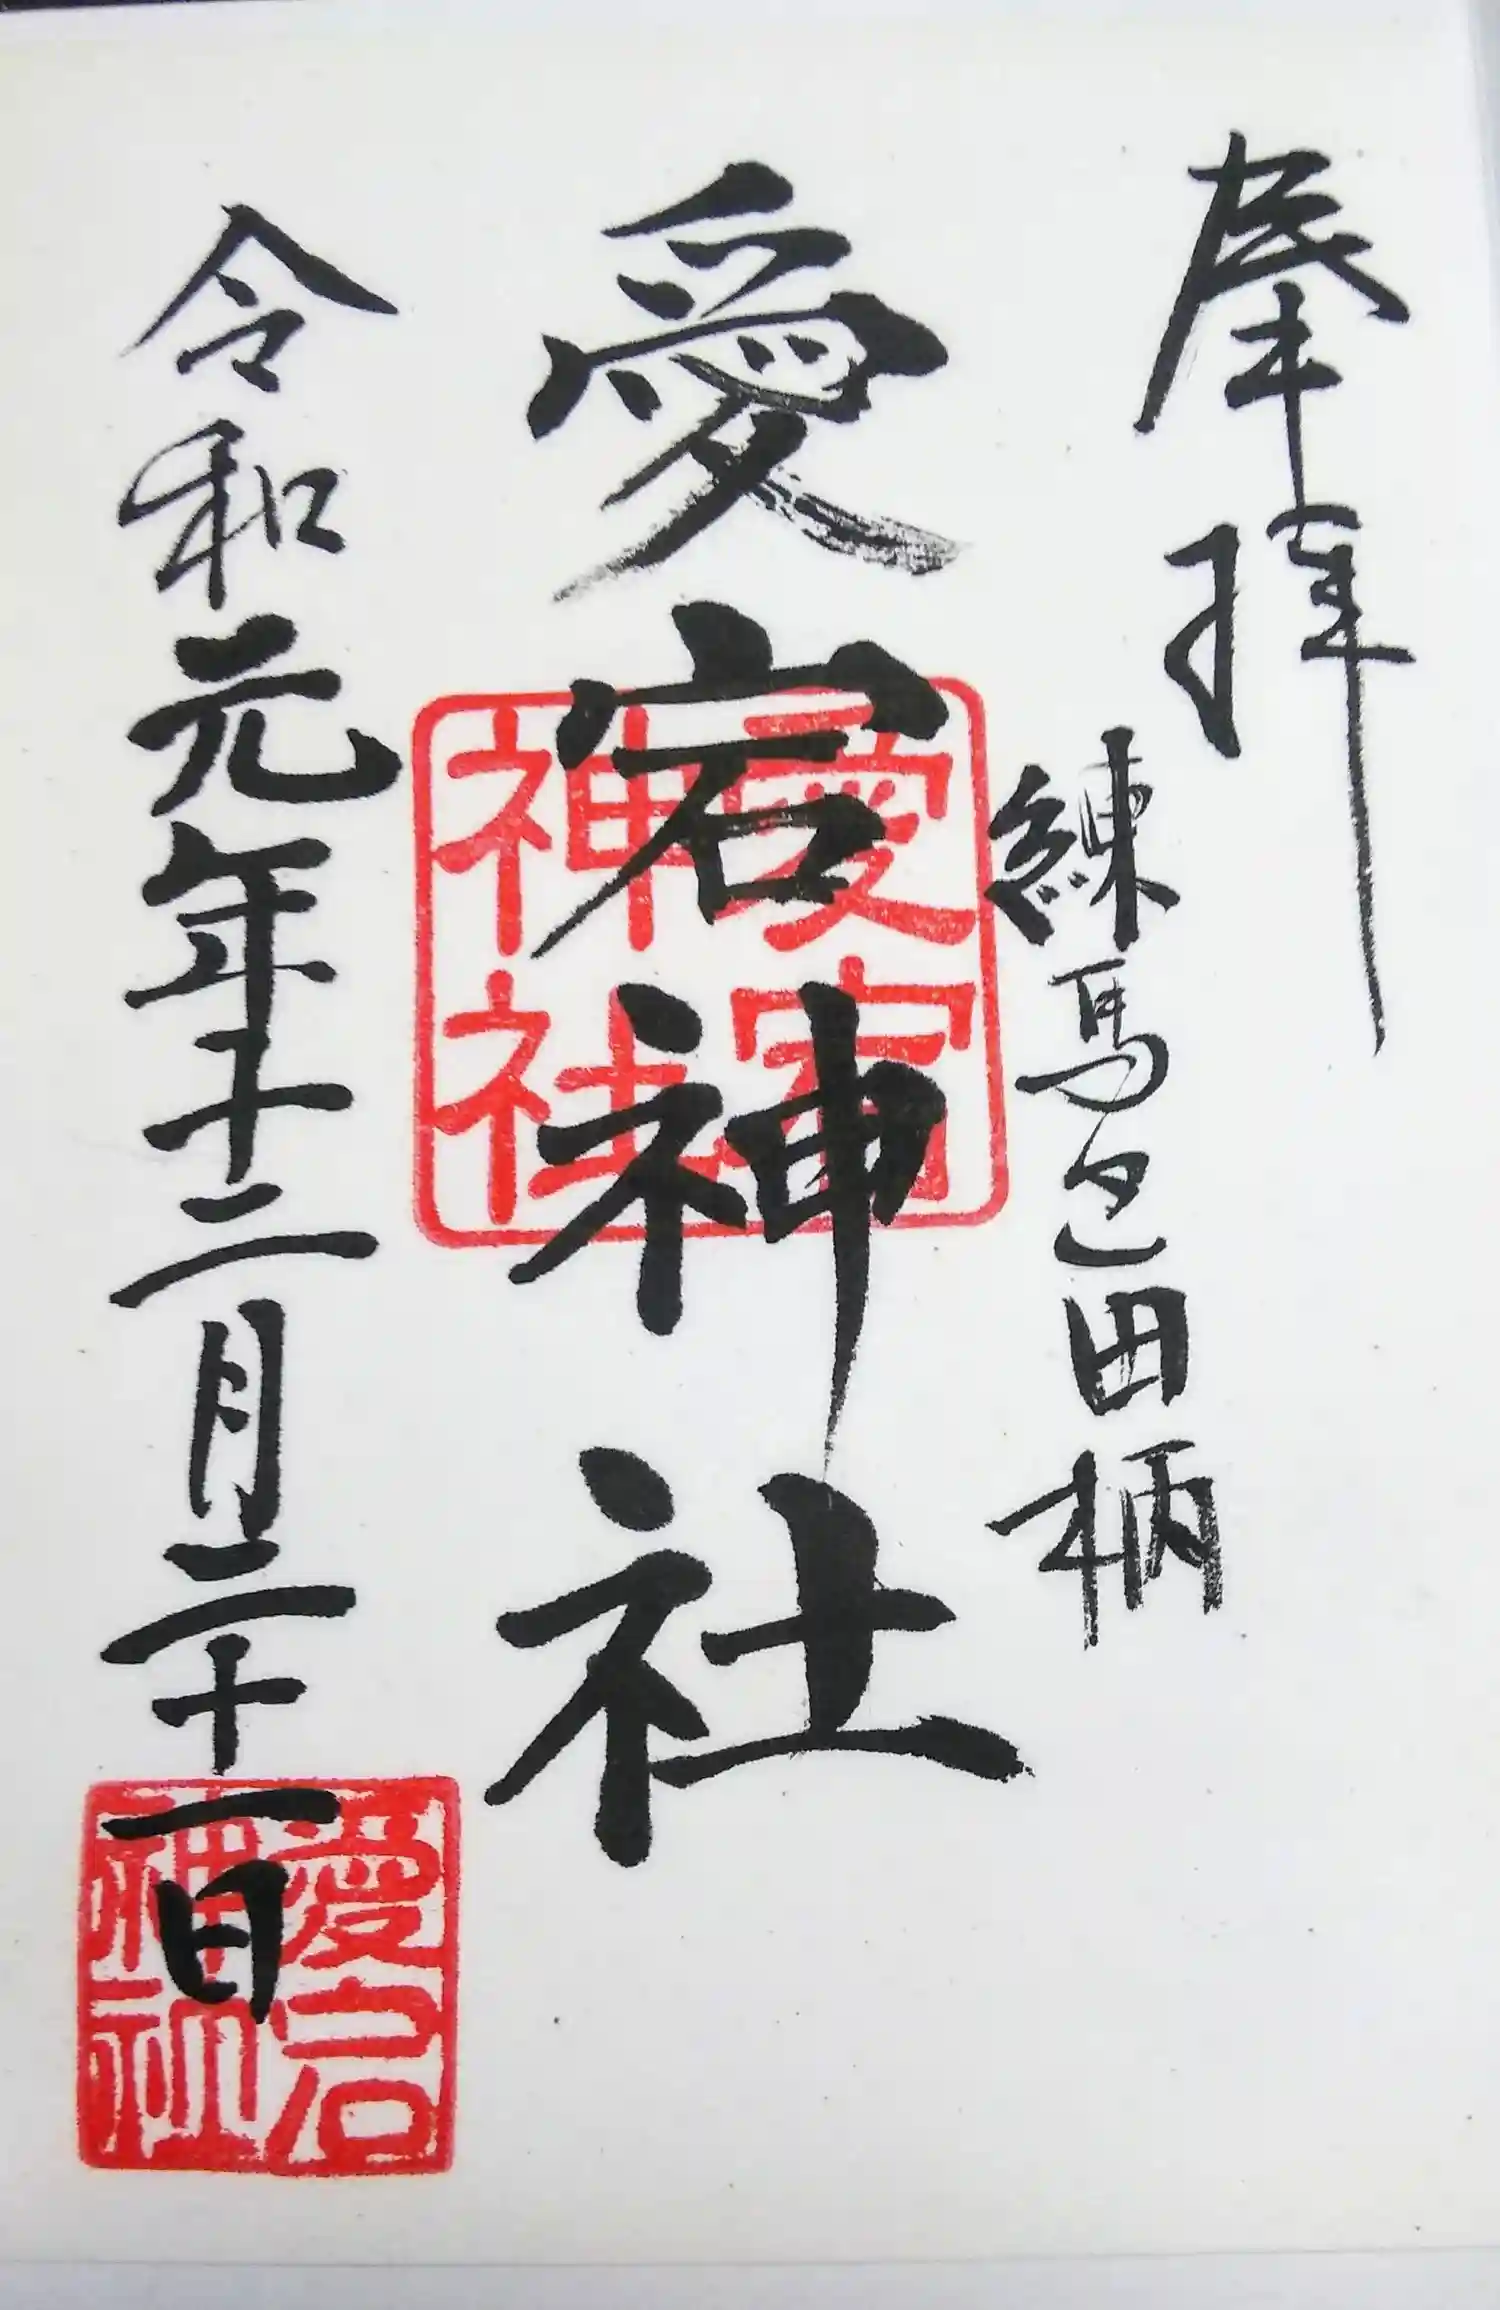 奉拝
練馬区田柄
愛宕神社
愛宕
神社
令和元年十二月二十一日
愛宕
神社